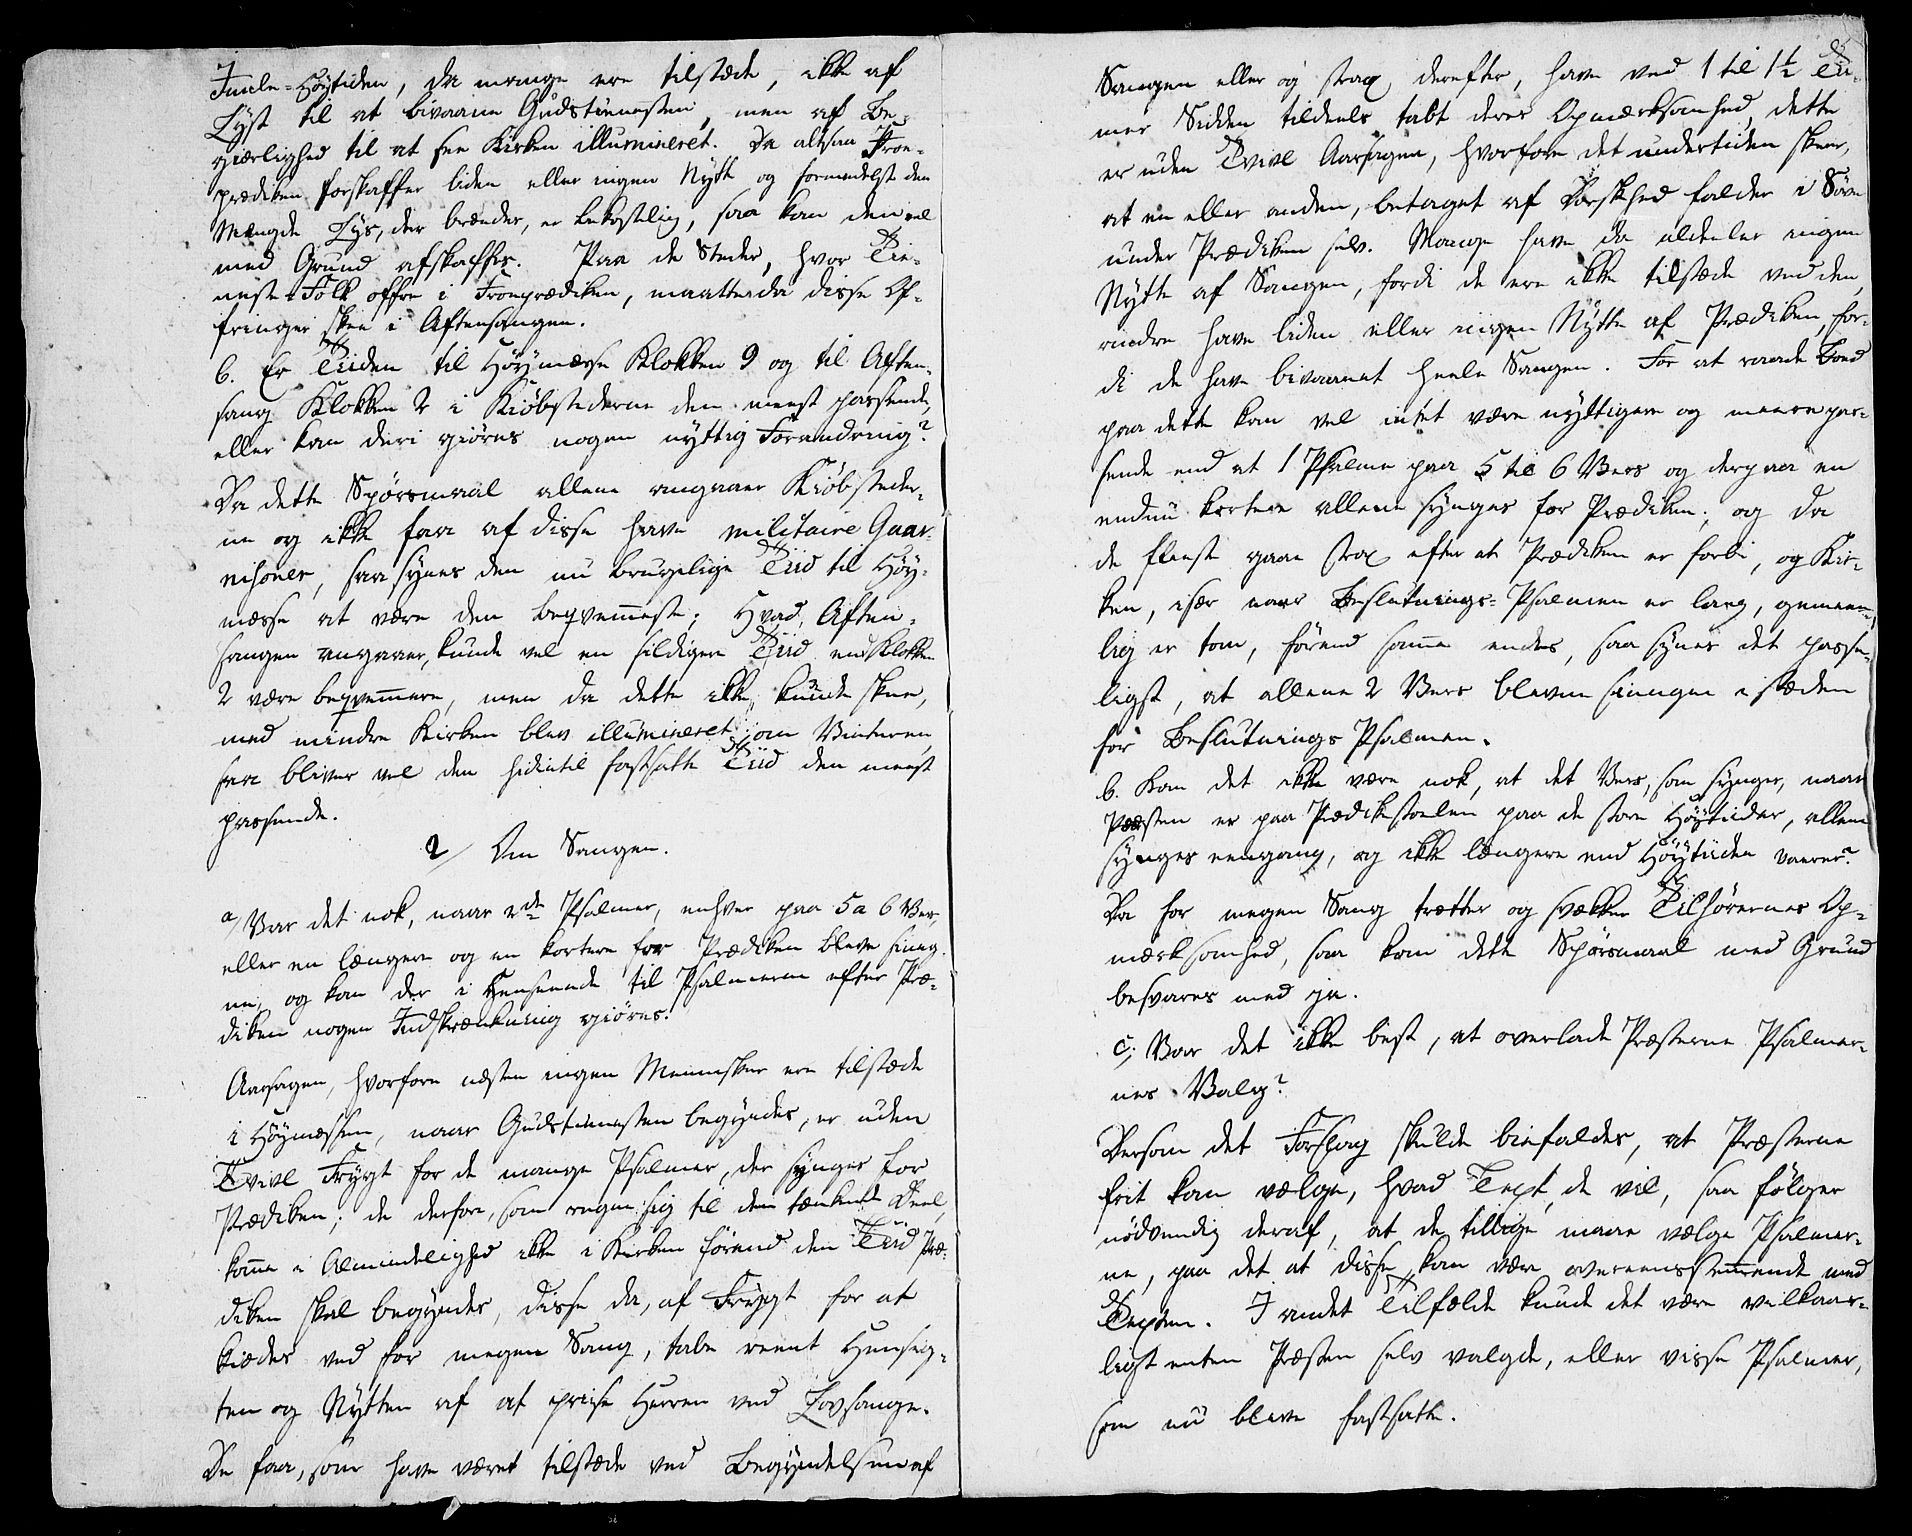 Juule-Høytiden, da mange ere tilstæde, ikke af
Lyst til at bivaane Gudstienesten, men af Be-
giærlighed til at see Kirken illumineret. Da altsaa Froe-
prædiken forskaffer liden eller ingen Nytte og formedelst den
Mængde Lys, der brænder, er bekostelig, saa kan den vel
med Grund afskaffes. Paa de Steder, hvor Tie-
neste-Folk offre i Froeprædiken, maatte da disse Of-
fringer skee i Aftensangen.
6. Er Tiiden til Høymæsse Klokken 9 og til Aften-
sang Klokken 2 i Kiøbstederne den meest passende,
eller kan deri giøres nogen nyttig Forandring?
Da dette Spørsmaal allene angaaer Kiøbsteder-
ne og ikke faa af disse have militaire Gaar-
nisoner, saa synes den nu brugelige Tiid til Høy-
mæsse at være den beqvemmeste; Hvad Aften-
sangen angaaer, kunde vel en sildigere Tiid end Klokken
2 være beqvemmere, men da dette ikke kunde skee,
med mindre Kirken blev illumineret om Vinteren,
saa bliver vel den hidintil fastsatte Tiid den meest
passende.
2/ Om Sangen.
a/ Var det nok, naar 2de Psalmer, enhver paa 5 a 6 Vers,
eller en længere og en kortere for Prædiken bleve siung-
ne, og kan der i Henseende til Psalmerne efter Præ-
diken nogen Indskrænkning giøres?
Aarsagen, hvorfore næsten ingen Mennesker ere tilstæde
i Høymessen, naar Gudstienesten begyndes, er uden
Tvivl Frygt for de mange Psalmer, der synges for
Prædiken; de derfore, som regne sig til den tænkende Deel,
komme i Almindelighed ikke i Kirken førend den Tiid Præ-
diken skal begyndes, disse da, af Frygt for at
kiædes ved for megen Sang, tabe reent Hensig-
ten og Nytten af at prise Herren ved Lovsange.
De faa, som have været tilstæde ved Begyndelsen af
Sangen eller og strax derefter, have ved 1 til 1½ Ti-
mes Sidden tildeels tabt deres Opmærksomhed, dette
er uden Tvivl Aarsagen, hvorfore det undertiden skeer,
at en eller anden, betaget af Dorskhed falder i Søvn
under Prædiken selv. Mange have da aldeles ingen
Nytte af Sangen, fordi de ere ikke tilstæde ved den,
andre have liden eller ingen Nytte af Prædiken, for-
di de have bivaanet heele Sangen. For at raade Bod
paa dette kan vel intet være nyttigere og meere pas-
sende end at 1 Psalme paa 5 til 6 Vers og derpaa en
endnu kortere allene synges for Prædiken; og da
de fleeste gaae strax efter at Prædiken er forbi, og Kir-
ken, især naar Beslutnings-Psalmen er lang, gemeen-
lig er tom, førend samme endes, saa synes det passe-
ligst, at allene 2 Vers bleven siungen i stæden
for Beslutnings Psalmen.
b. Kan det ikke være nok, at det Vers, som synges, naar
Præsten er paa Prædikestoelen paa de store Høytiider, allene
synges eengang, og ikke længere end Høytiiden vaerer?
Da for megen Sang trætter og svækker Tilhørernes Op-
mærksomhed, saa kan dette Spørsmaal med Grund
besvares med ja.
c; Var det ikke best, at overlade Præsterne Psalmer-
nes Valg?
Dersom det Forslag skulde biefaldes, at Præsterne
frit kan vælge, hvad Text de vil, saa følger
nødvendig deraf, at de tillige maae vælge Psalmer-
ne, paa det at disse kan være overeensstemmende med
Texten. I andet Tilfælde kunde det være vilkaar-
ligt enten Præsten selv valgde, eller visse Psalmer,
som nu bleve fastsatte.